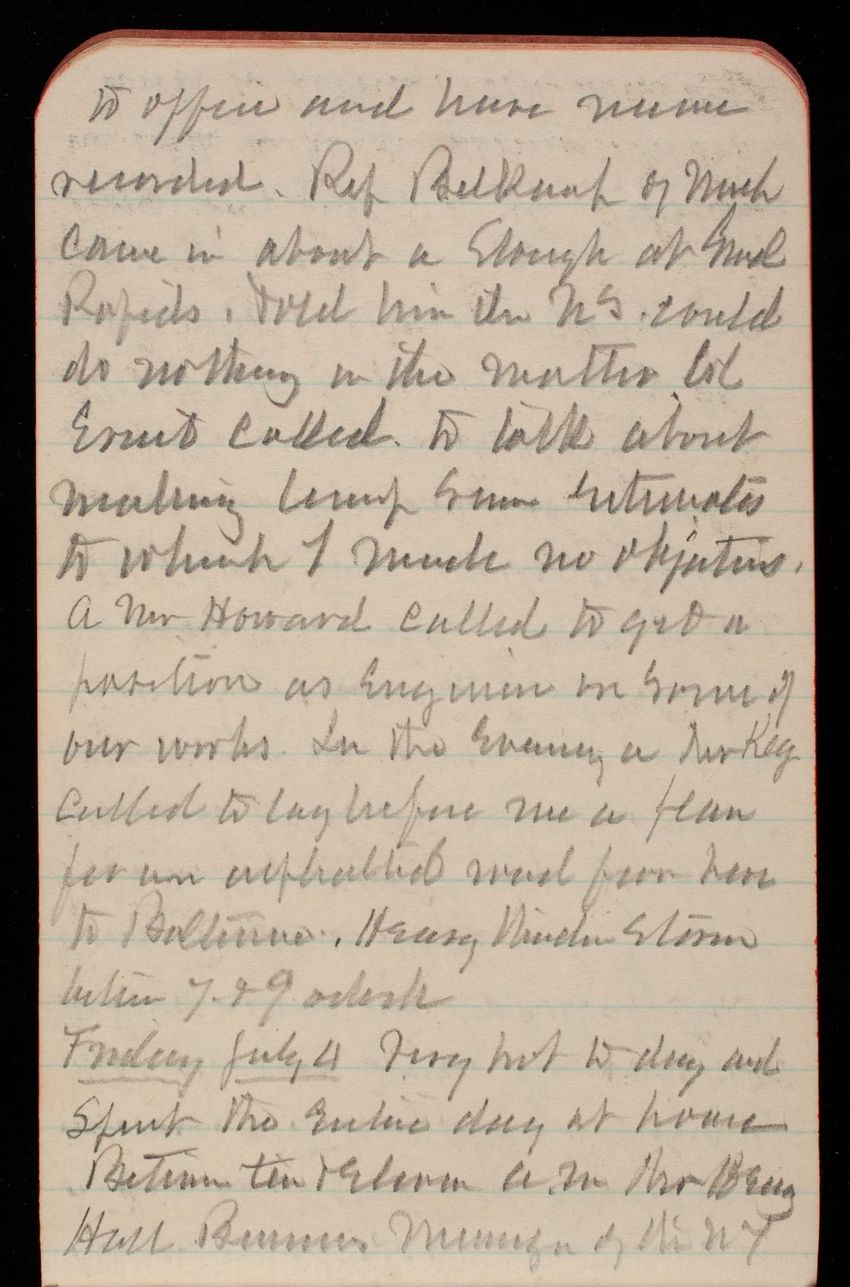 to office and have name
recorded. Rep Belknap of Mich
came in about a Slough at Grnd
Rapids. Told him the U.S. could
do nothing in the matter Col
Ernst called. to talk about
making lump sum estimates
to which I made no objections.
A Mr Howard called to get a
position as Engineer on some of
our works. In the Evening a Mr Key
called to lay before me a plan
for an asphalted road from here
to Baltimore. Heavy Thunder Storm
between 7 & 9 oclock
Friday July 4 Very hot to day and
Spent the Entire day at home
Between ten & Eleven a.m Mr Henry
Hall Business Manager of the N Y